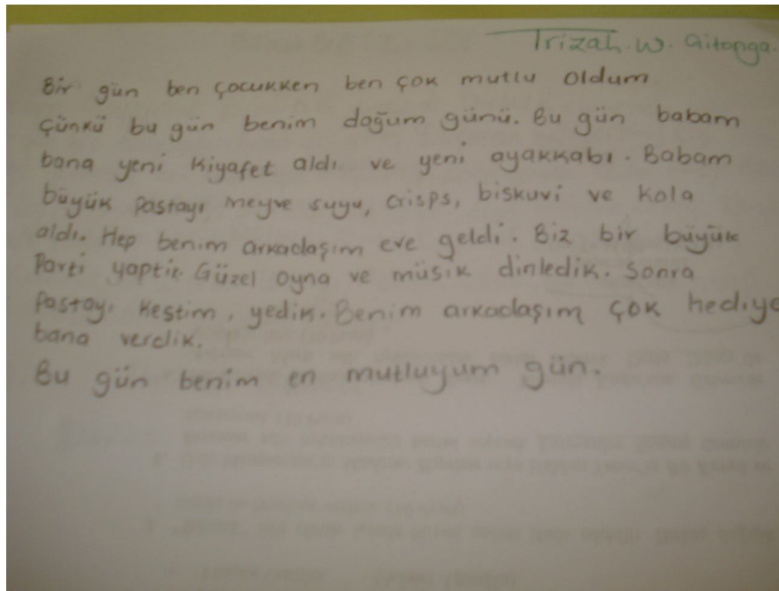 Trizah. W. Gitonga.
Bir gün ben çocukken ben çok mutlu oldum
çünkü bu gün benim doğum günü. Bu gün babam
bana yeni kiyafet aldı ve yeni ayakkabı. Babam
büyük pastayı meyve suyu, crisps, biskuvi ve kola
aldı. Hep benim arkadaşım eve geldi. Biz bir büyük
Parti yaptik. Güzel oyna ve müsik dinledik. Sonra
pastayı kestim, yedik. Benim arkadaşım çok hediye
bana verdik.
Bu gün benim en mutluyum gün.